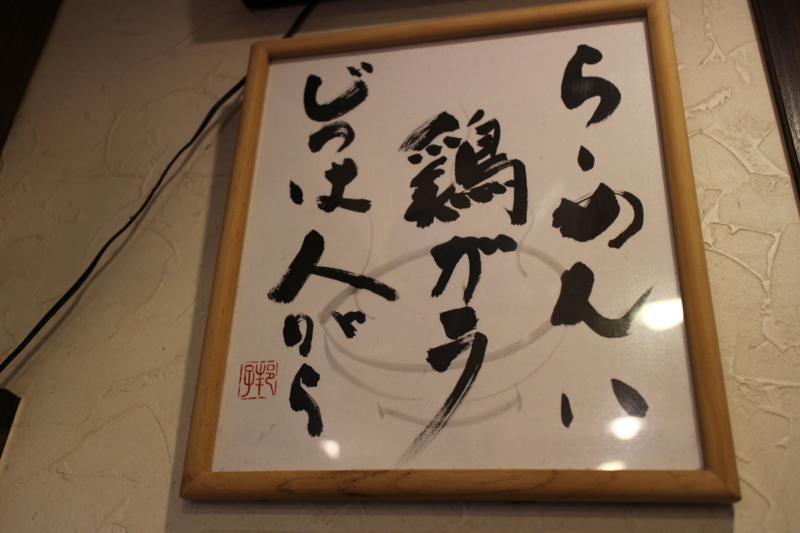 らーめんハ
鶏ガラ
じつは人がら
邦子